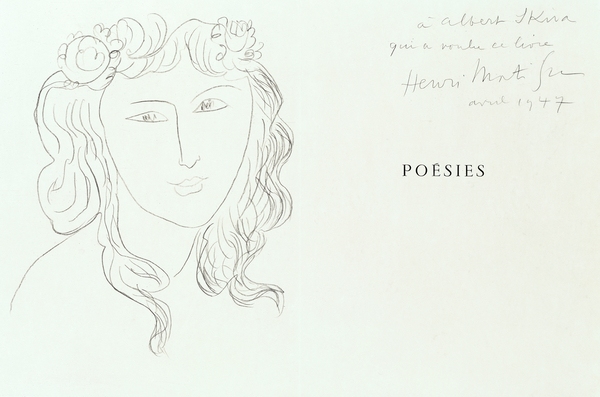 à Albert Skira
qui a voulu ce livre
Henri Matisse
avril 1947
POÉSIES